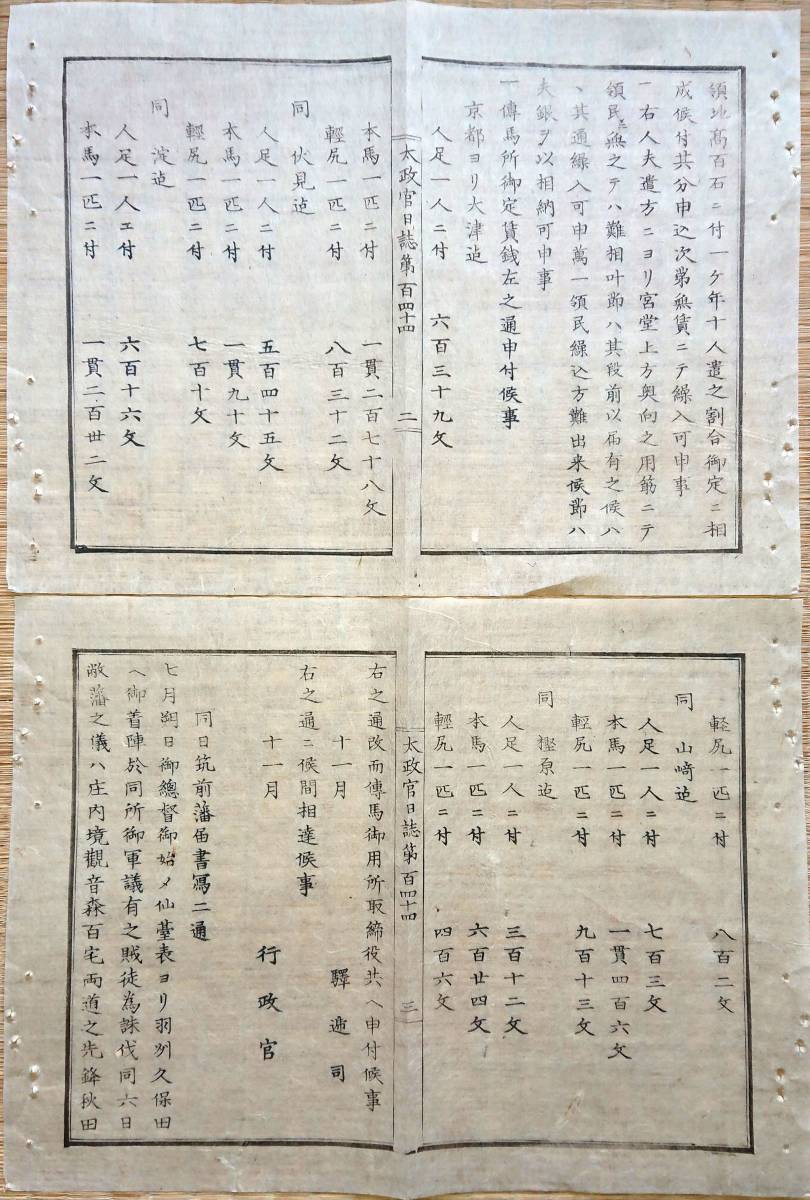 領地高百石ニ付一ケ年十人遣之割合御定ニ相
成候付其分申込次第無賃ニテ繰入可申事
一右人夫遣方ニヨリ宮堂上方奥向之用筋ニテ
領民ニ無之テハ難相叶節ハ其段前以届有之候ハ
、其通繰入可申萬一領民繰込方難出来候節ハ
夫銀ヲ以相納可申事
一傳馬所御定賃銭左之通申付候事
京都ヨリ大津迠
人足一人ニ付 六百三十九文
太政官日誌第百四十四 二
本馬一匹ニ付 一貫二百七十八文
輕尻一匹ニ付 八百三十二文
同 伏見迠
人足一人ニ付 五百四十五文
本馬一匹ニ付 一貫九十文
輕尻一匹ニ付 七百十文
同 淀迠
人足一人エ付 六百十六文
本馬一匹ニ付 一貫二百廿二文
軽尻一匹ニ付 八百二文
同 山﨑迠
人足一人ニ付 七百三文
本馬一匹ニ付 一貫四百六文
輕尻一匹ニ付 九百十三文
同 樫原迠
人足一人ニ付 三百十二文
本馬一匹ニ付 六百廿四文
輕尻一匹ニ付 四百六文
太政官日誌第百四十四 三
右之通改而傳馬御用所取締役共ヘ申付候事
十一月 驛逓司
右之通ニ候間相達候事
十一月 行政官
同日筑前藩届書寫二通
七月朔日御總督御始メ仙䑓表ヨリ羽州久保田
ヘ御着陣於同所御軍議有之賊徒為誅伐同六日
敝藩之儀ハ庄内境觀音森百宅両道之先鋒秋田